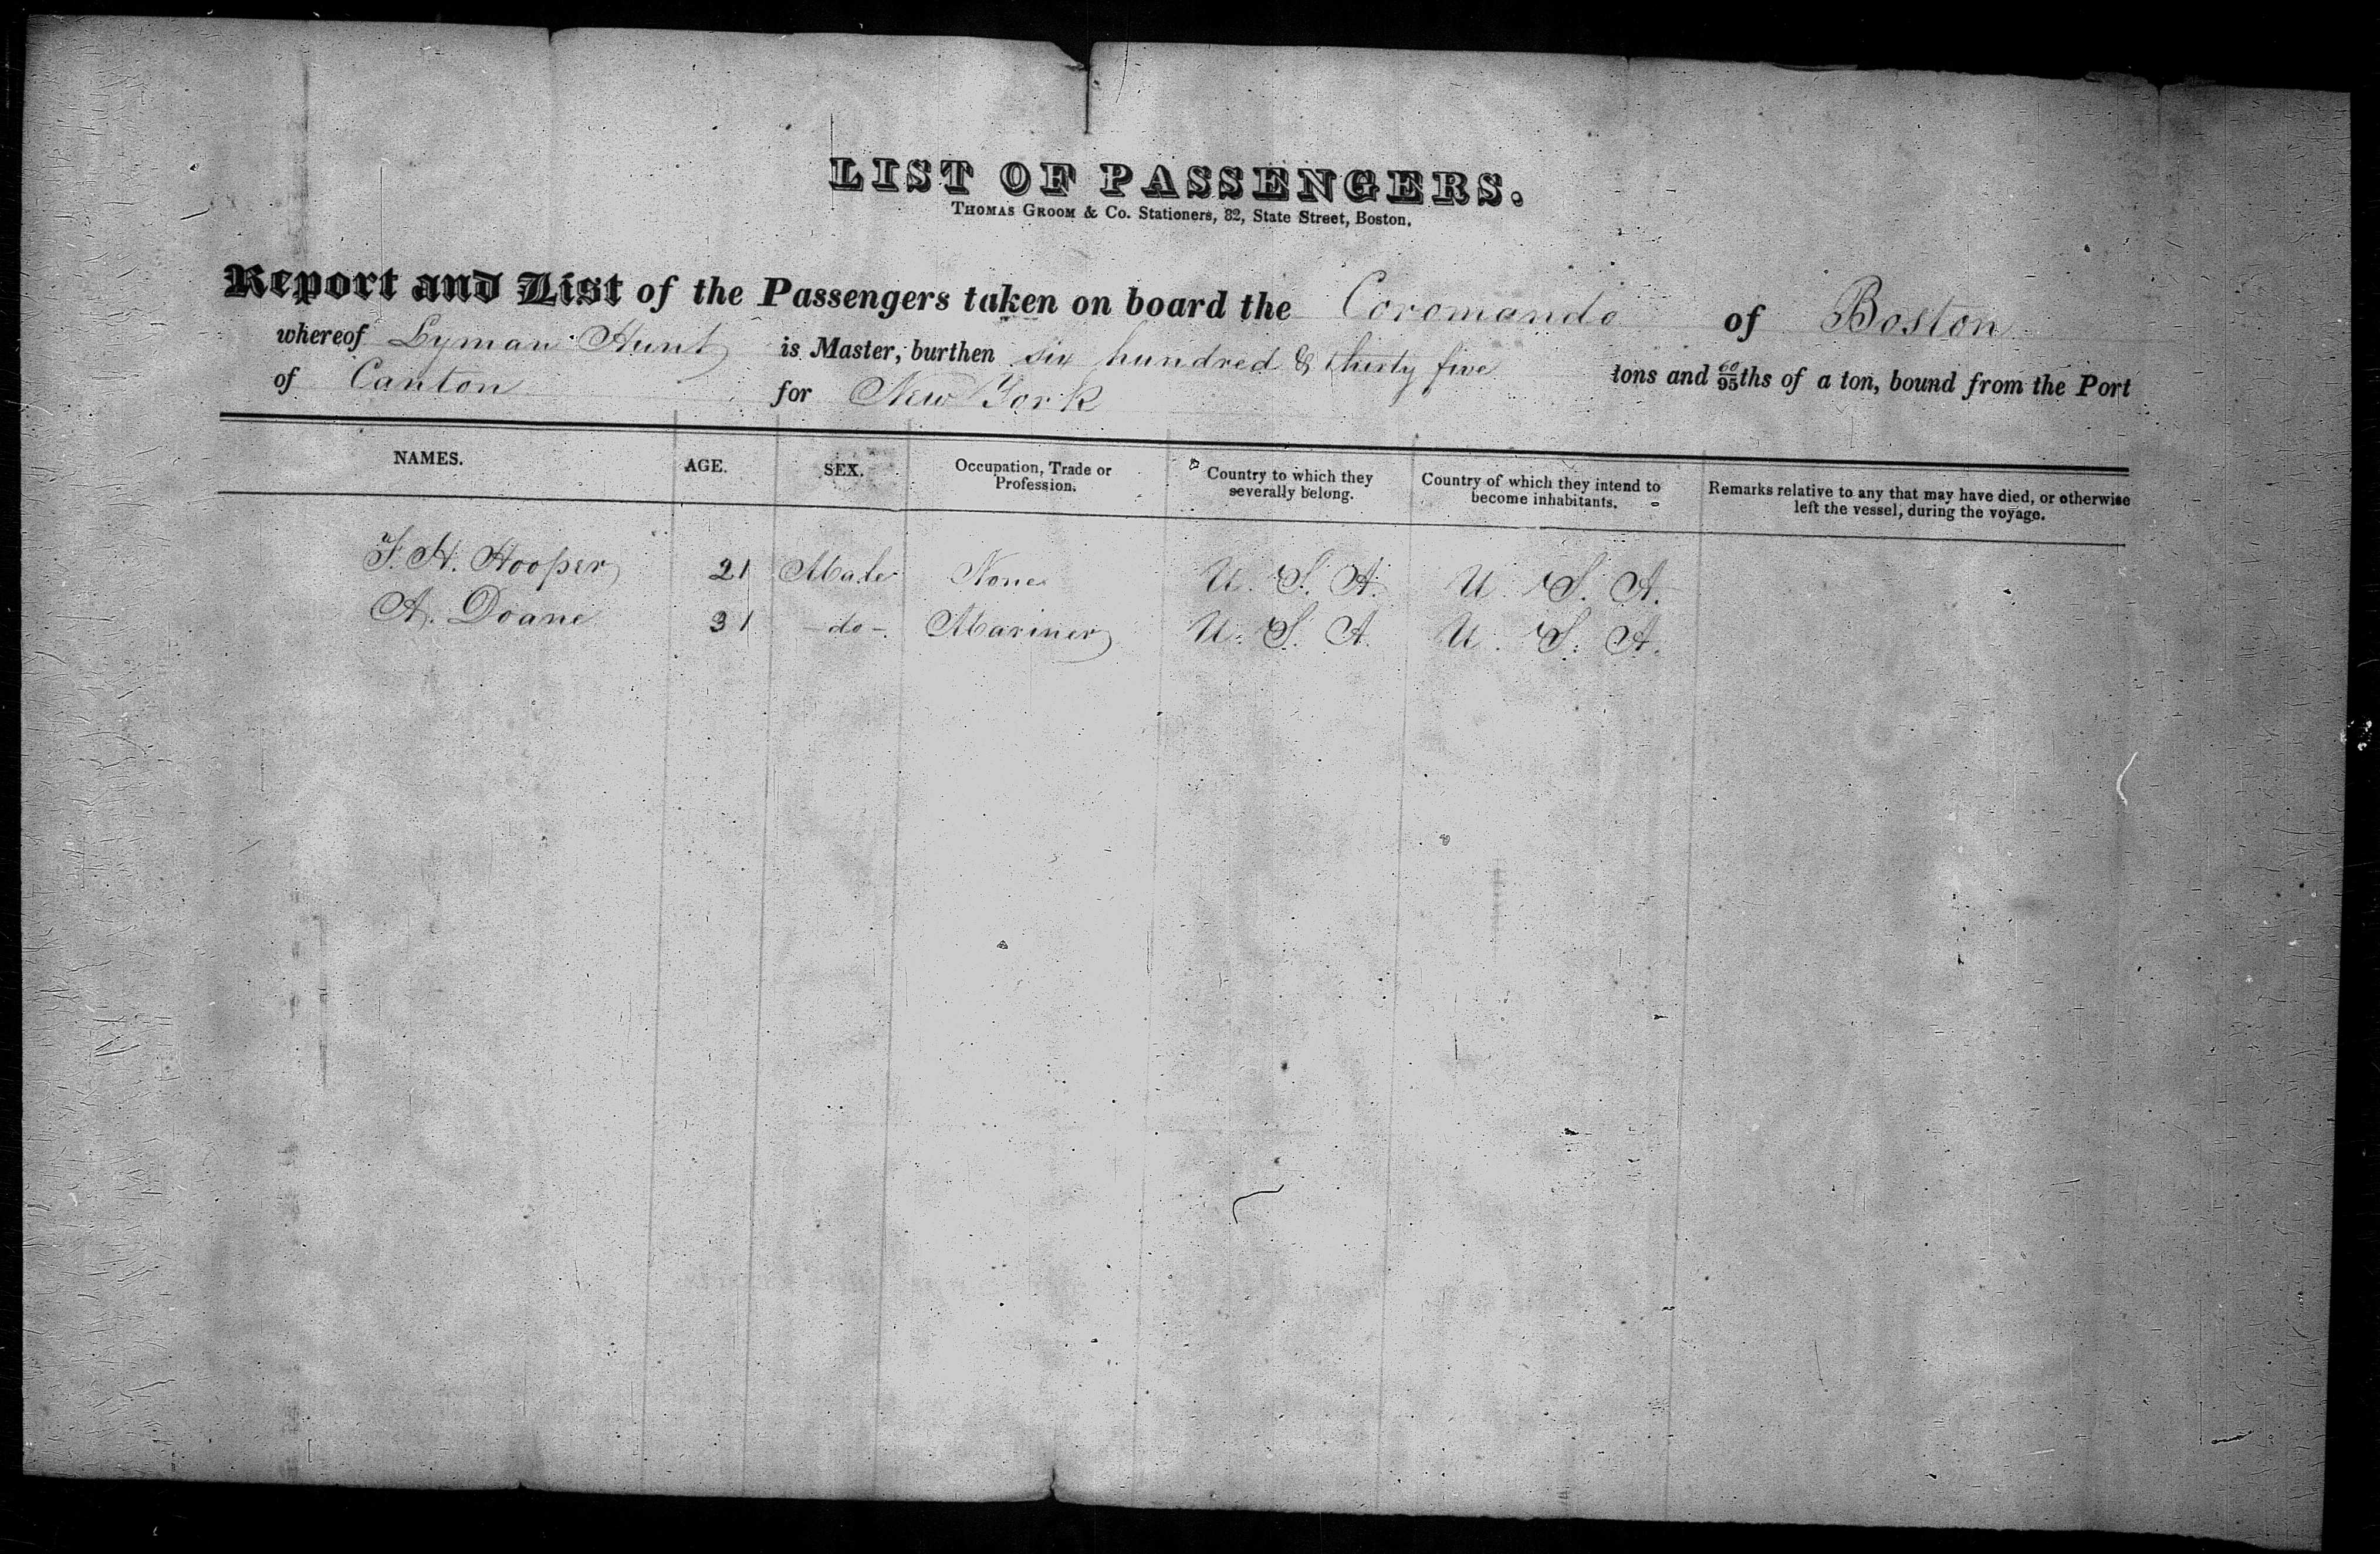 LIST OF PASSENGERS.
THOMAS GROOM & Co. Stationers, 82, State Street, Boston.
Report and List of the Passengers taken on board the Coromando of Boston
whereof Lyman Hunt is Master, burthen six hundred & thirty five tons and 60/95ths of a ton, bound from the Port
of Canton for New York
NAMES. AGE. SEX. Occupation, Trade or Profession. Country to which they severally belong. Country of which they intend to become inhabitants. Remarks relative to any that may have died, or otherwise left the vessel, during the voyage.
J. H. Hooper 21 Male None U. S. A. U. S. A.
A. Doane 31 - do - Mariner U. S. A. U. S. A.